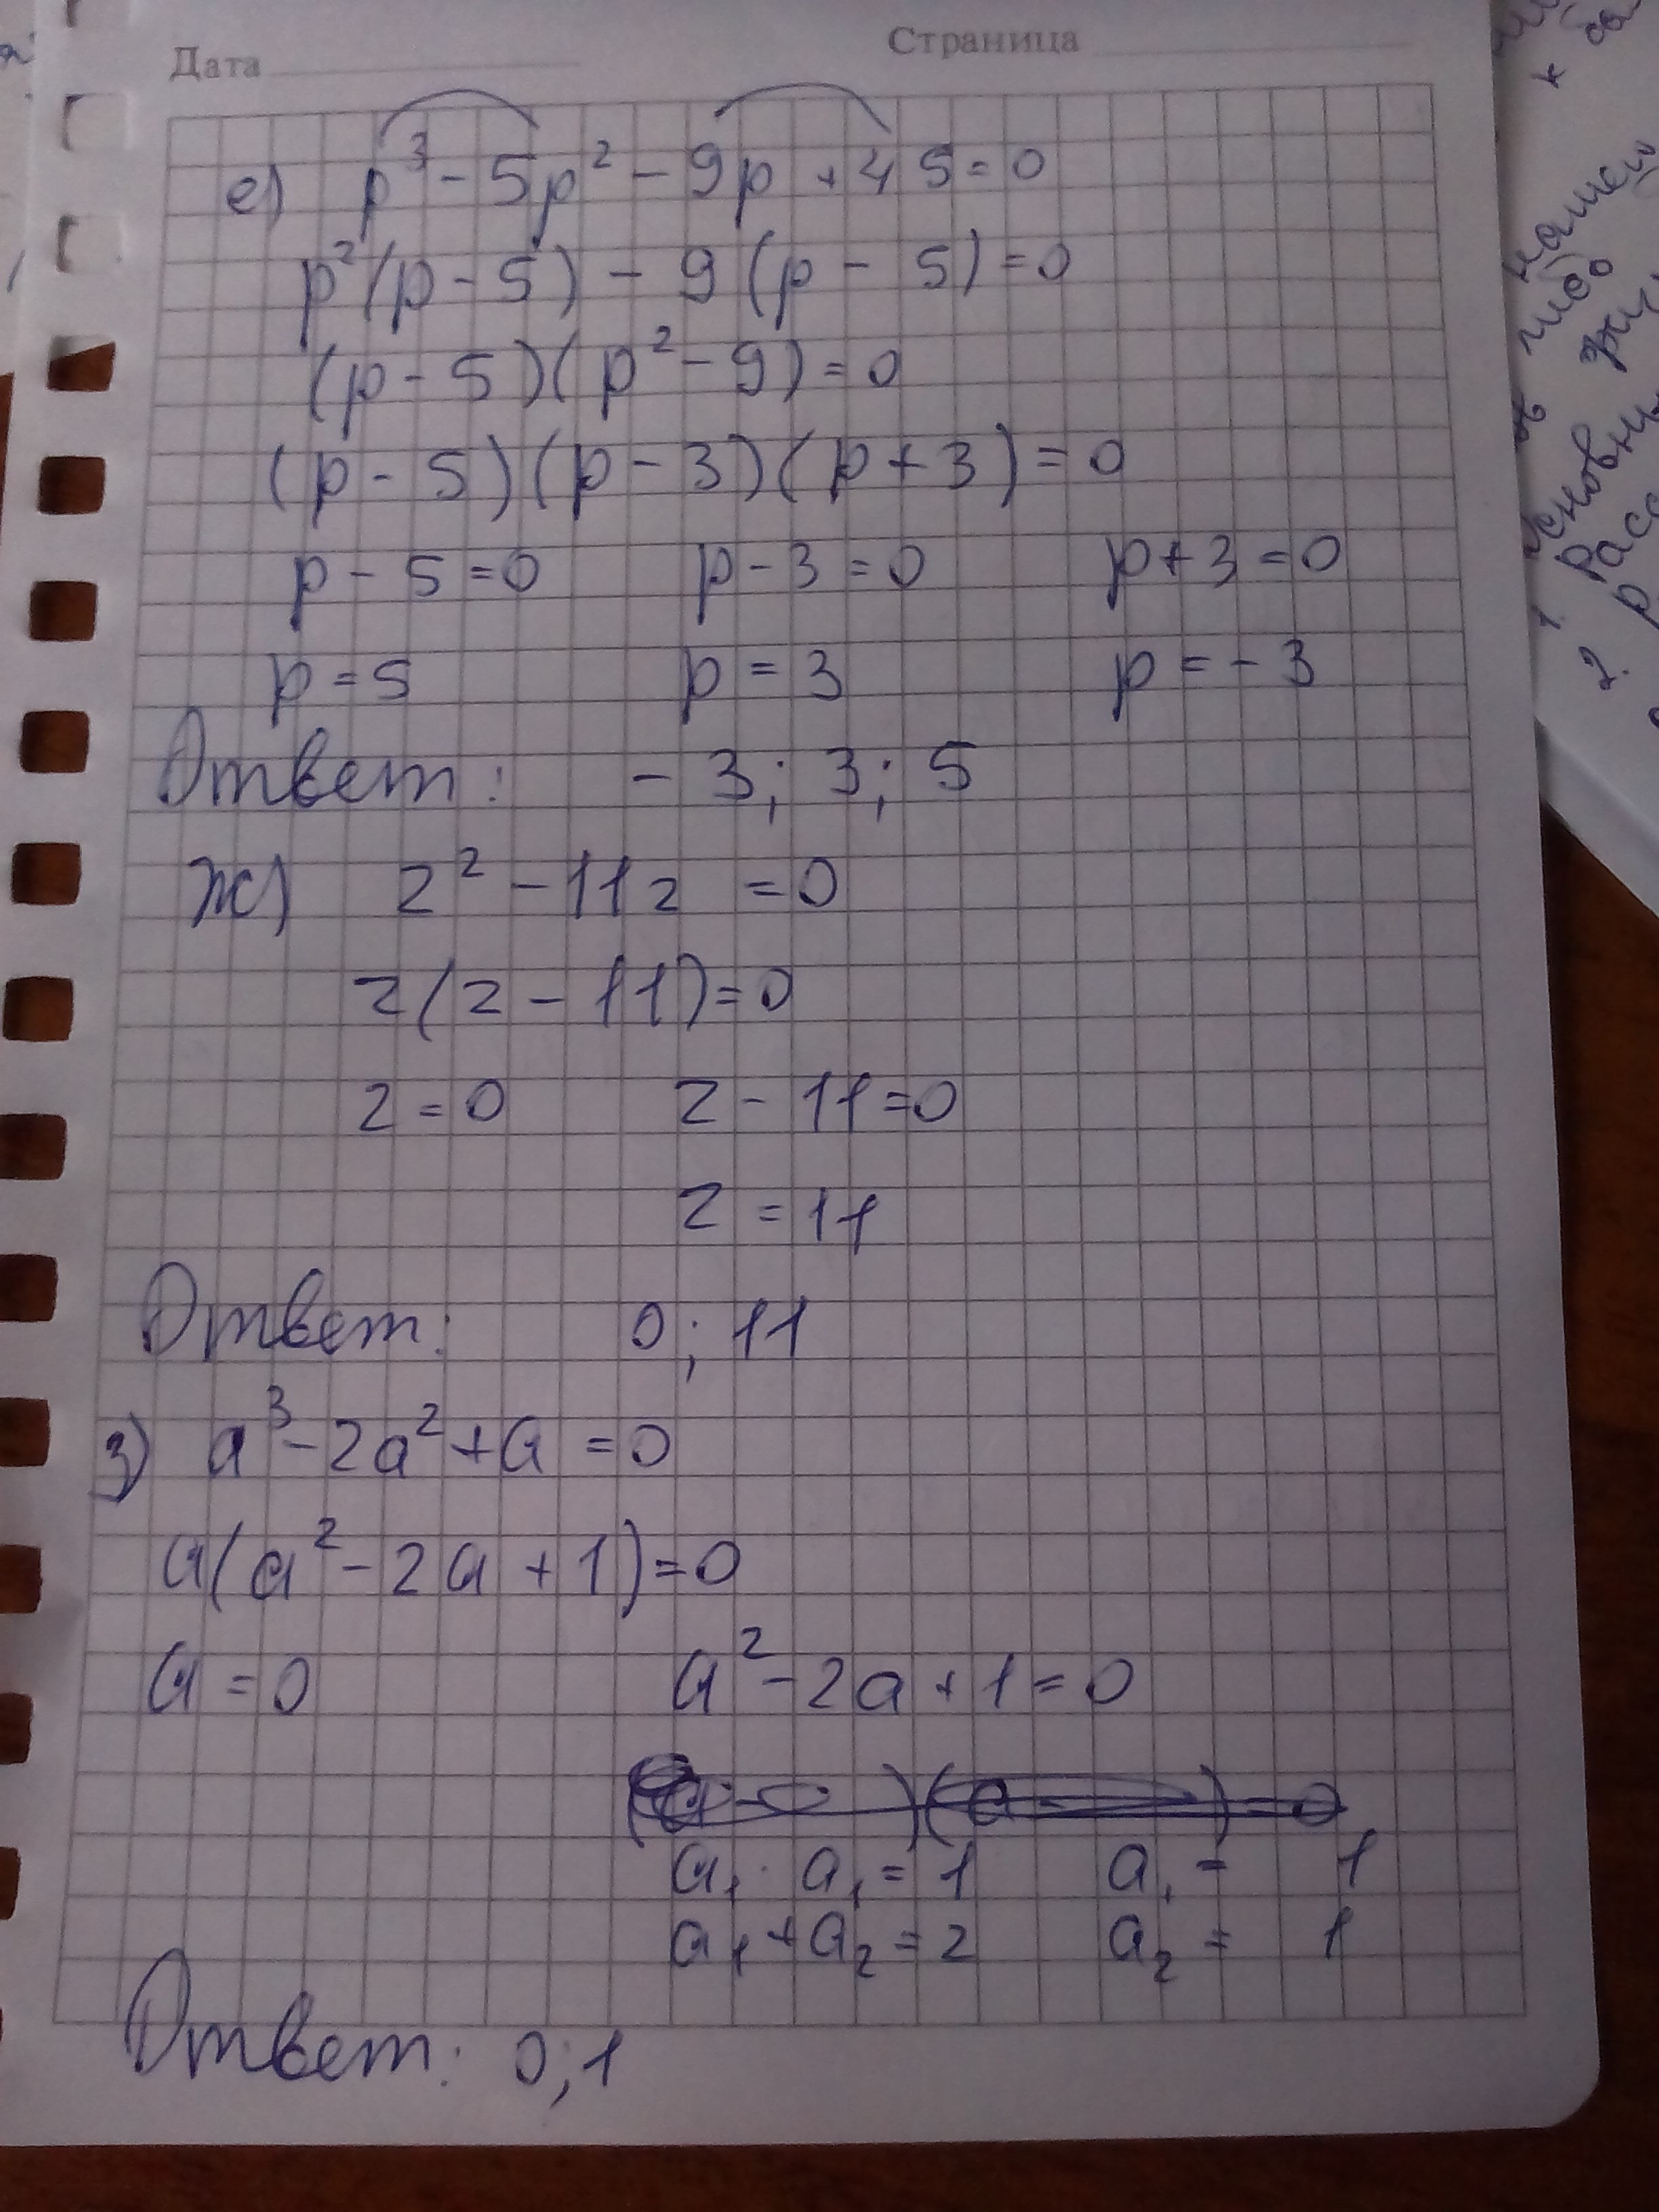 Дата Страница
е) p³ - 5p² - 9p + 45 = 0
p²(p - 5) - 9(p - 5) = 0
(p - 5)(p² - 9) = 0
(p - 5)(p - 3)(p + 3) = 0
p - 5 = 0 p - 3 = 0 p + 3 = 0
p = 5 p = 3 p = - 3
Ответ: - 3; 3; 5
ж) z² - 11z = 0
z(z - 11) = 0
z = 0 z - 11 = 0
z = 11
Ответ: 0; 11
з) a³ - 2a² + a = 0
a(a² - 2a + 1) = 0
a = 0 a² - 2a + 1 = 0
a₁ · a₁ = 1 a₁ = 1
a₁ + a₂ = 2 a₂ = 1
Ответ: 0; 1